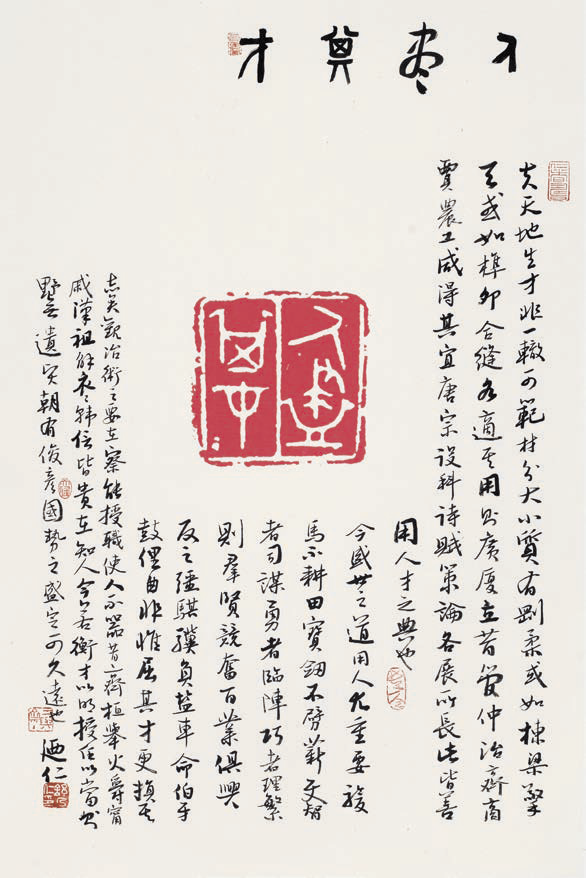 人盡其才
夫天地生才非一轍可範材分大小質有剛柔或如棟梁擎
天或如榫卯合縫各適其用則廣廈立昔管仲治齊商
賈農工咸得其宜唐宗設科詩賦策論各展所長此皆善
用人才之典也
今盛世之道用人尤重要駿
馬不耕田寶劒不劈薪智
者司謀勇者臨陣巧者理繁
則羣賢競奮百業俱興
反之騏驥負盐車命伯牙
鼓俚曲非惟屈其才更損其
志矣觀治術之要在察能授職使人不器昔齊桓舉火爵甯
戚漢祖解衣々韓信皆貴在知人今若衡才以明授任以當則
野無遺賢朝有俊彥國勢之盛定可久遠也 廼仁
人盡
其才